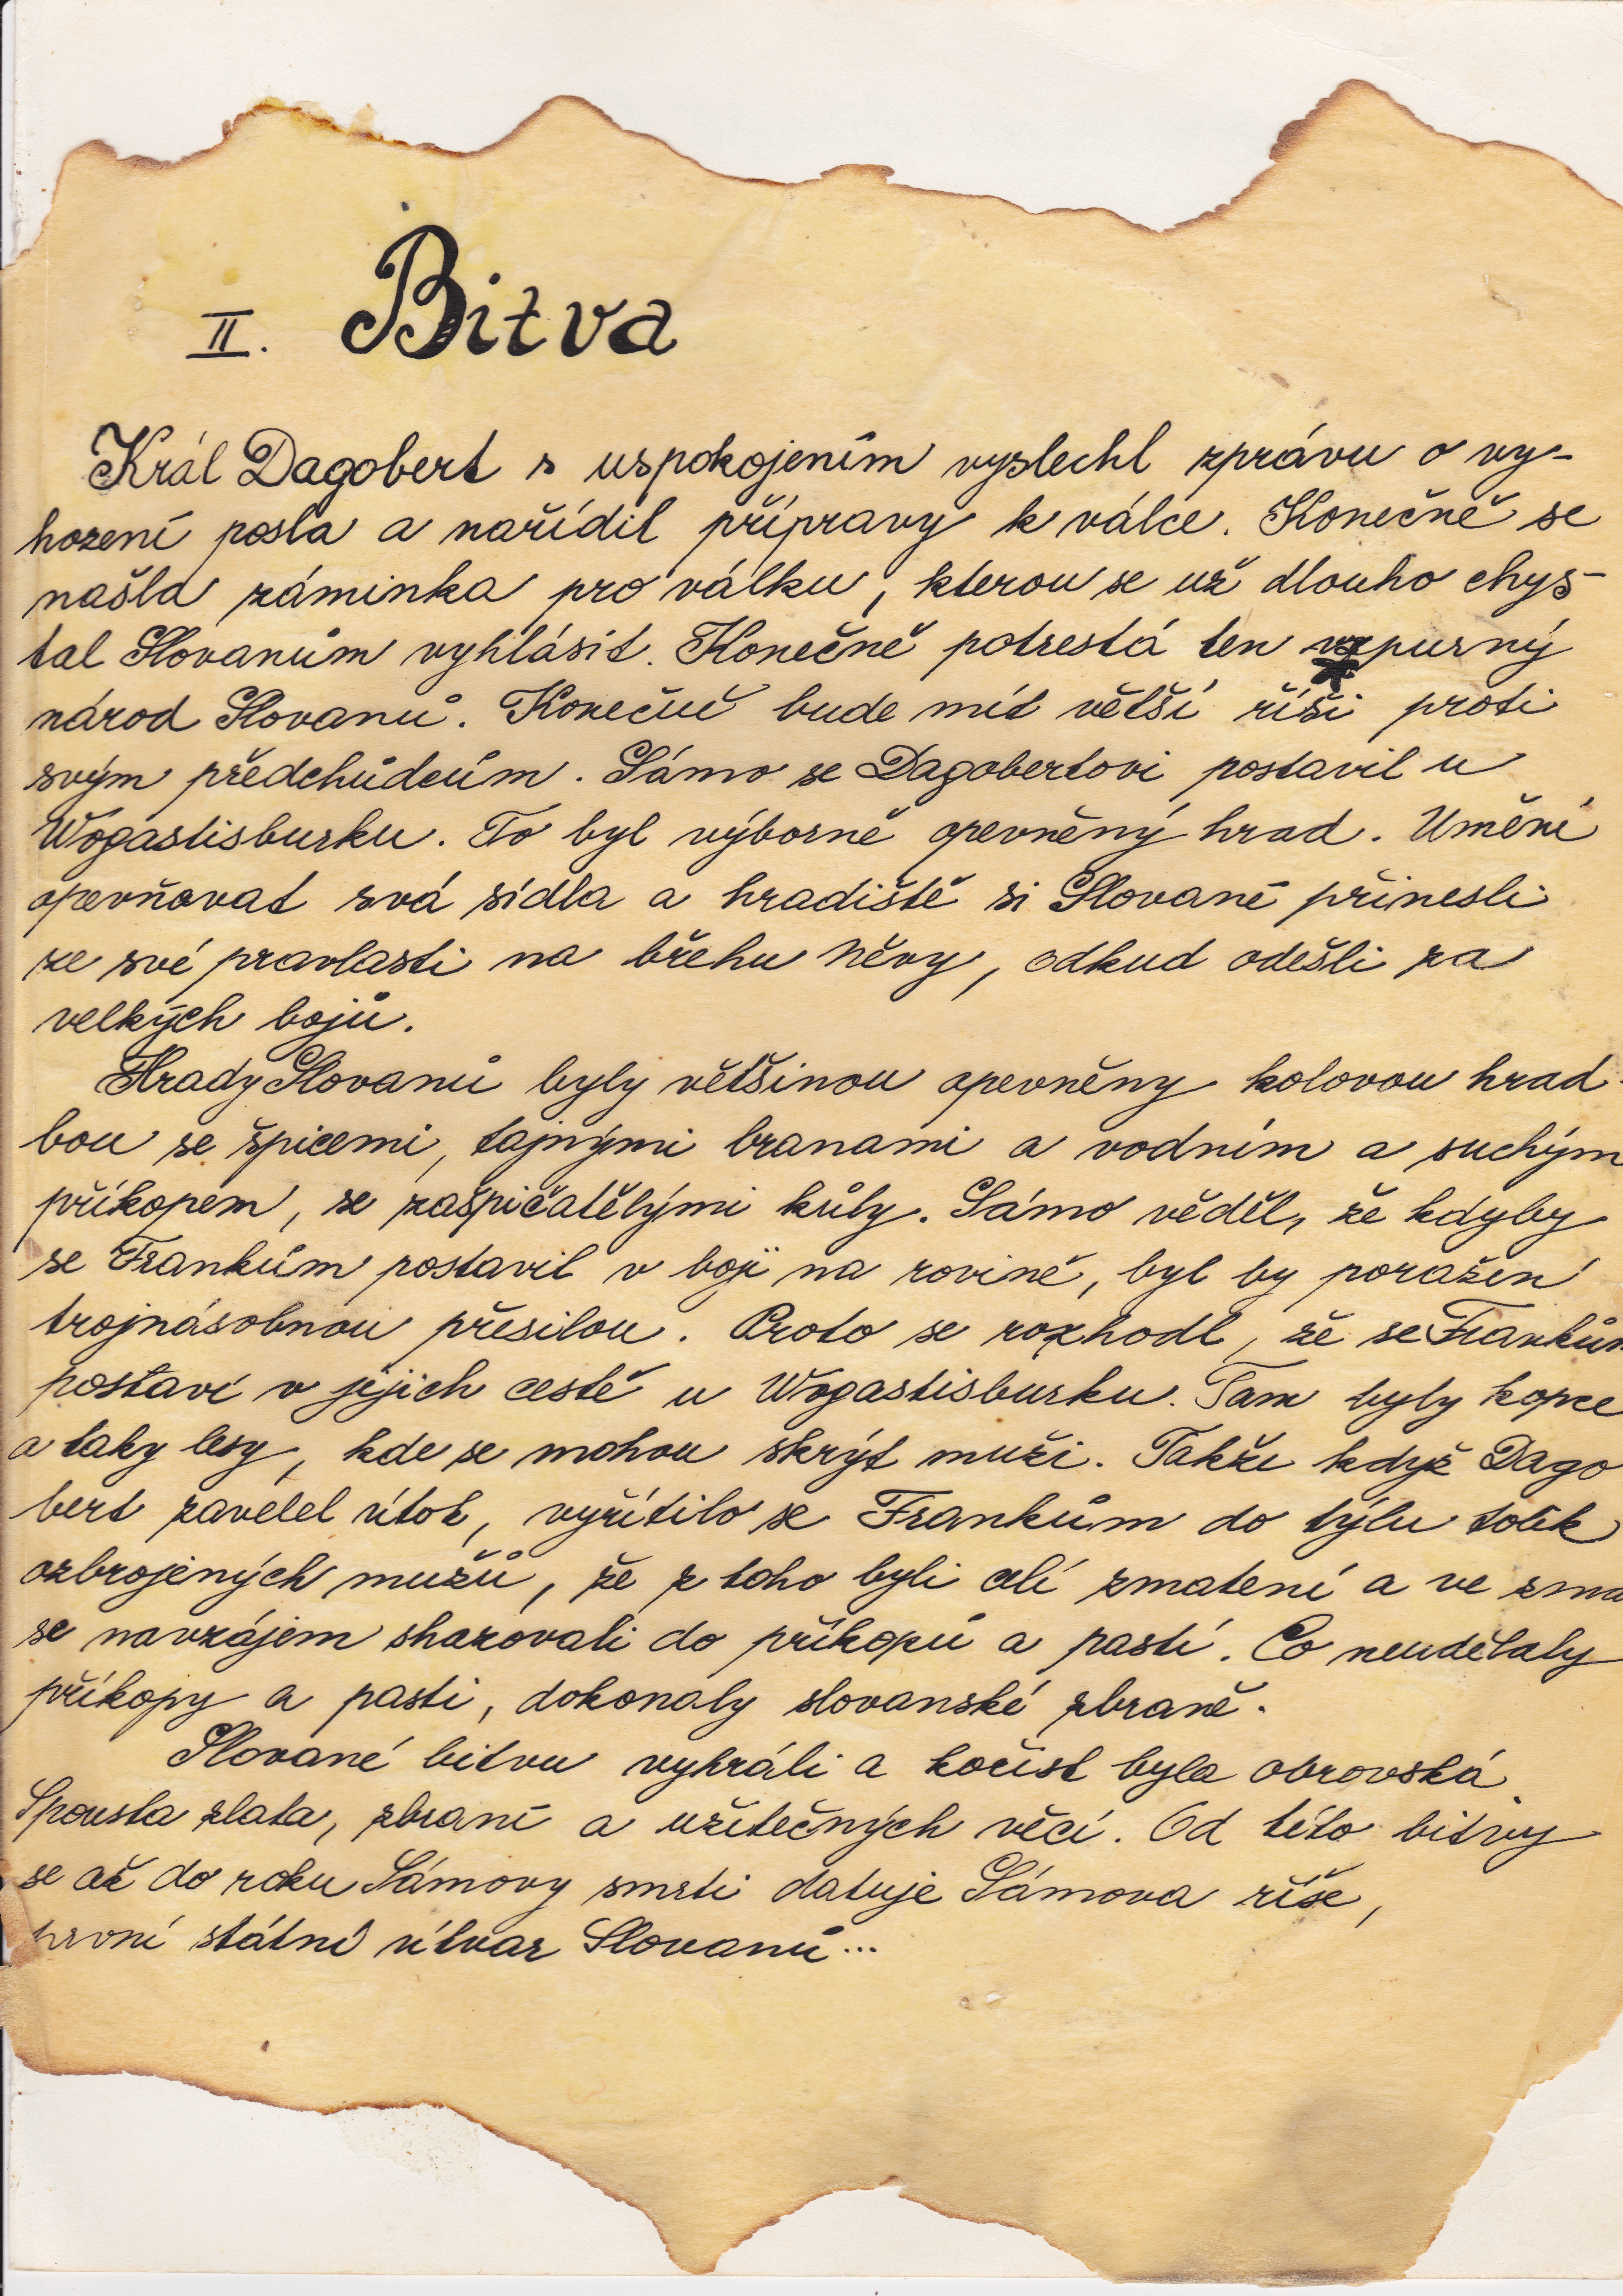 II. Bitva
Král Dagobert s uspokojením vyslechl zprávu o vy-
hození posla a nařídil přípravy k válce. Konečně se
našla záminka pro válku, kterou se už dlouho chys-
tal Slovanům vyhlásit. Konečně potrestá ten vzpurný
národ Slovanů. Konečně bude mít větší říši proti
svým předchůdcům. Sámo se Dagobertovi postavil u
Wogastisburku. To byl výborně opevněný hrad. Umění
opevňovat svá sídla a hradiště si Slované přinesli
ze své pravlasti na břehu Něvy, odkud odešli za
velkých bojů.
Hrady Slovanů byly většinou opevněny kolovou hrad-
bou se špicemi, tajnými branami a vodním a suchým
příkopem, se zašpičatělými kůly. Sámo věděl, že kdyby
se Frankům postavil v boji na rovině, byl by poražen
trojnásobnou přesilou. Proto se rozhodl, že se Frankům
postaví v jejich cestě u Wogastisburku. Tam byly kopce
a taky lesy, kde se mohou skrýt muži. Takže když Dago
bert zavelel útok, vyřítilo se Frankům do týlu tolik
ozbrojených mužů, že z toho byli celí zmatení a ve zma
se navzájem shazovali do příkopů a pastí. Co neudělaly
příkopy a pasti, dokonaly slovanské zbraně.
Slované bitvu vyhráli a kořist byla obrovská.
Spousta zlata, zbraní a užitečných věcí. Od této bitvy
se až do roku Sámovy smrti datuje Sámova říše,
první státní útvar Slovanů...